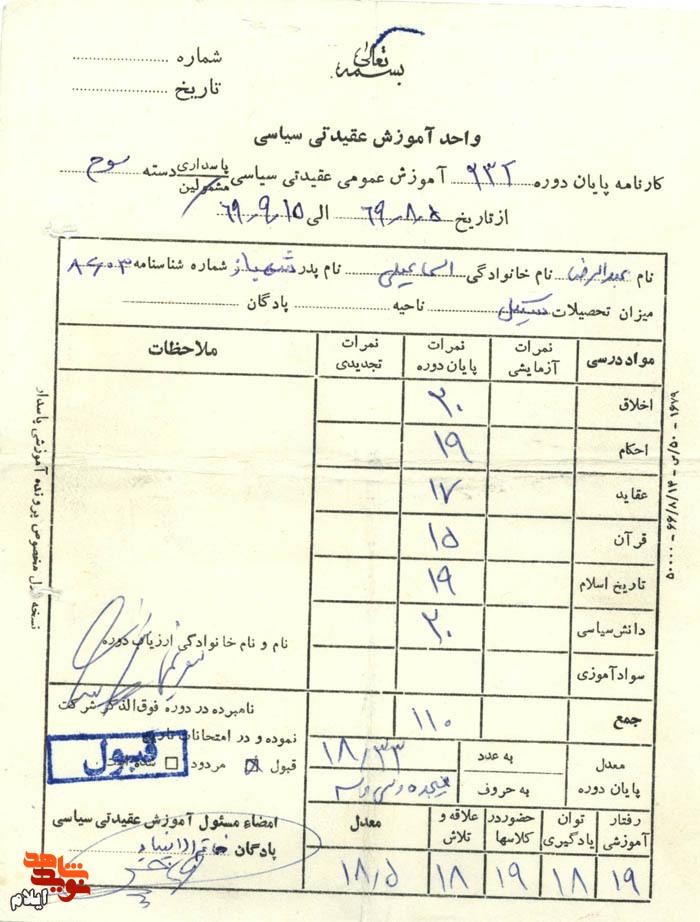 بسمه تعالی
شماره ....................
تاریخ ....................
واحد آموزش عقیدتی سیاسی
کارنامه پایان دوره ۹۳۲ آموزش عمومی عقیدتی سیاسی پاسداری مشمولین دسته سوم
از تاریخ ۶۹٫۸٫۵ الی ۶۹٫۹٫۱۵
نام عبدالرضا نام خانوادگی اسماعیلی نام پدر شهباز شماره شناسنامه ۸۴۰۳
میزان تحصیلات سیکل ناحیه .......... پادگان ..........
مواد درسی نمرات آزمایشی نمرات پایان دوره نمرات تجدیدی ملاحظات
اخلاق ۲۰
احکام ۱۹
عقاید ۱۷
قرآن ۱۵
تاریخ اسلام ۱۹
دانش سیاسی ۲۰
سوادآموزی
جمع ۱۱۰
نام و نام خانوادگی ارزیاب دوره
نامبرده در دوره فوق‌الذکر شرکت
نموده و در امتحانات
قبول ☒ مردود ☐
قبول
معدل پایان دوره به عدد ۱۸/۳۳
به حروف هیجده و سی و سه
رفتار آموزشی توان یادگیری حضور در کلاسها علاقه و تلاش معدل
۱۹ ۱۸ ۱۹ ۱۸ ۱۸٫۵
امضاء مسئول آموزش عقیدتی سیاسی
پادگان خاتم الانبیاء
۵۰۰۰۰ - ۶۶/۸/۱۴ - ۵۰/س - ۱۶۷۹
مخصوص پرونده آموزشی پاسدار
نوید شاهد
ایلام